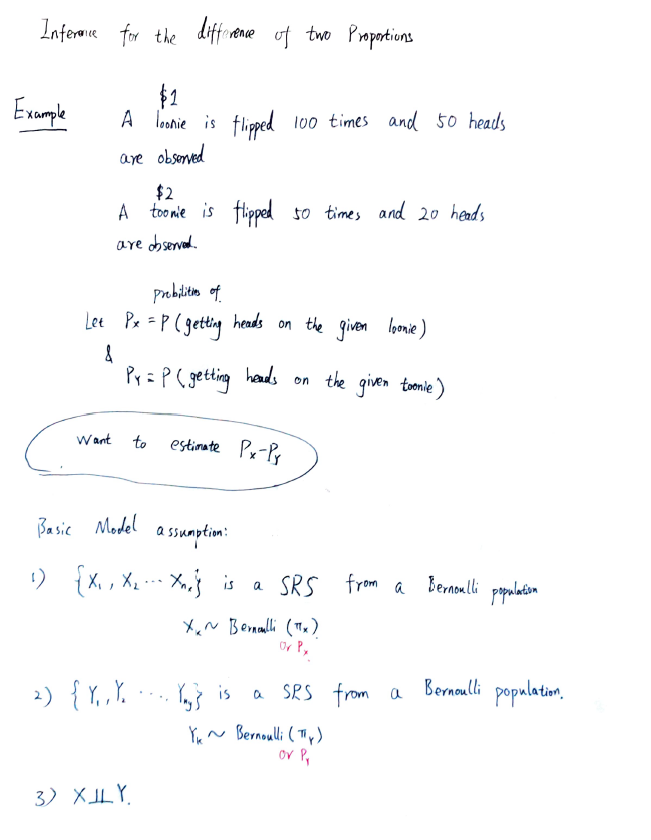 Inference for the difference of two Proportions
$1
Example A loonie is flipped 100 times and 50 heads
are observed
$2
A toonie is flipped 50 times and 20 heads
are observed.
probilities of
Let Px = P (getting heads on the given loonie)
&
PY = P (getting heads on the given toonie)
Want to estimate Px-PY
Basic Model assumption:
1) {X₁, X₂ ... Xnₓ} is a SRS from a Bernoulli population
Xₖ ~ Bernoulli (πx)
or Px
2) {Y₁, Y₂ .... YnY} is a SRS from a Bernoulli population.
Yₖ ~ Bernoulli (πY)
or PY
3) X⫫Y.